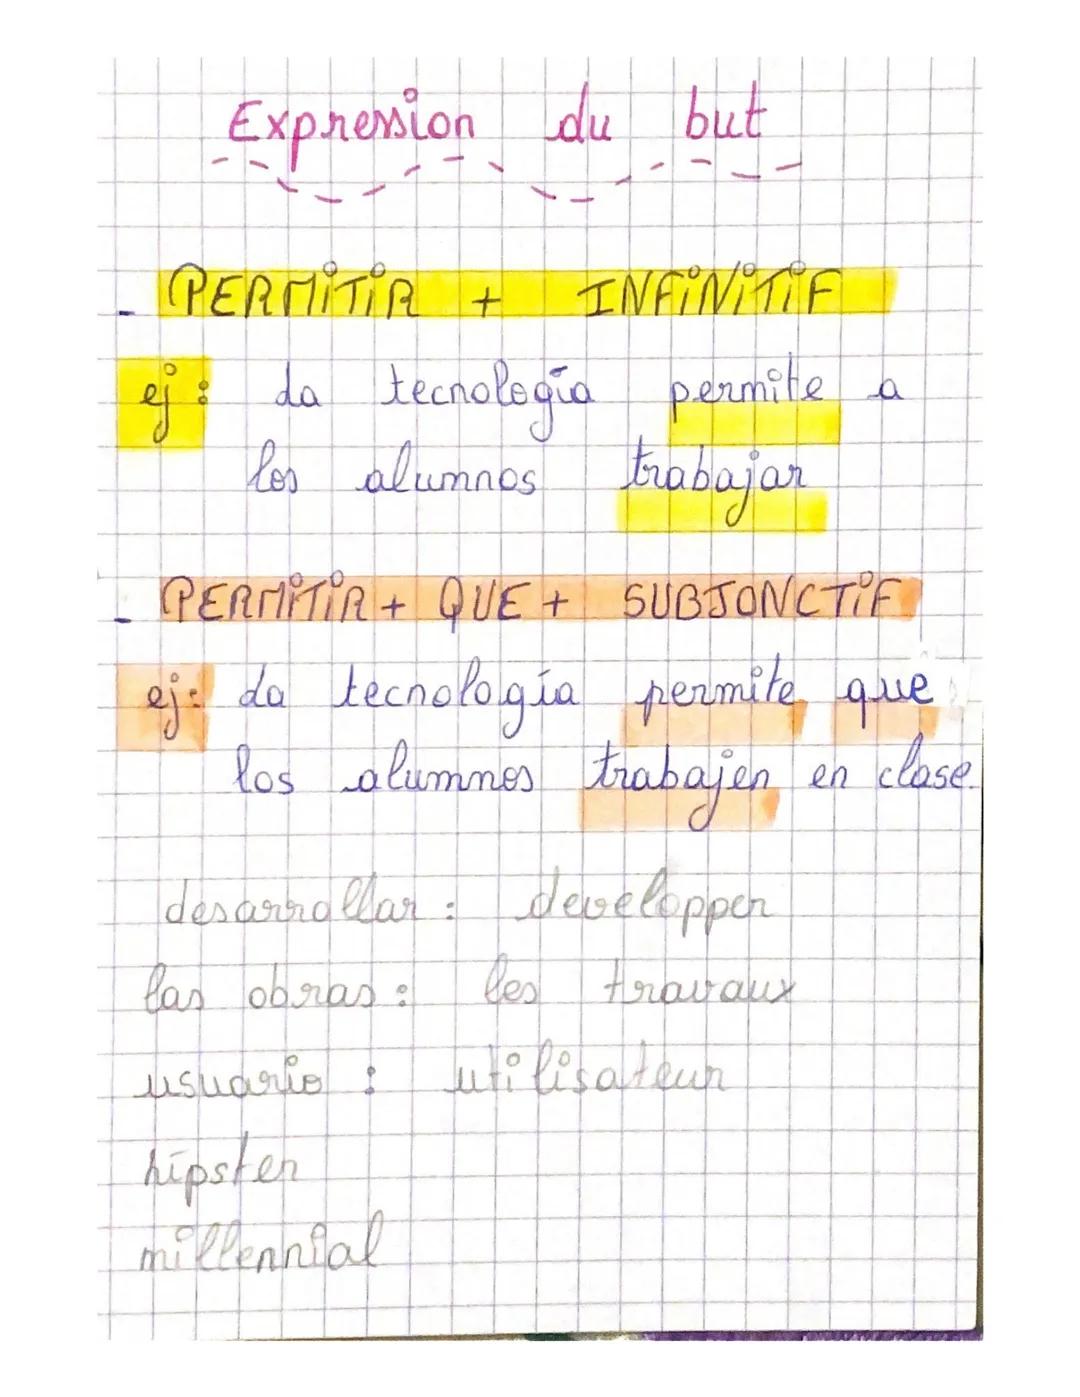 Expression du but
- PERMITIR + INFINITIF
ej: La tecnología permite a
los alumnos trabajar
- PERMITIR + QUE + SUBJONCTIF
ej: La tecnología permite que
los alumnos trabajen en clase.
desarrollar: developper
las obras: les travaux
usuario: utilisateur
hipster
millennial